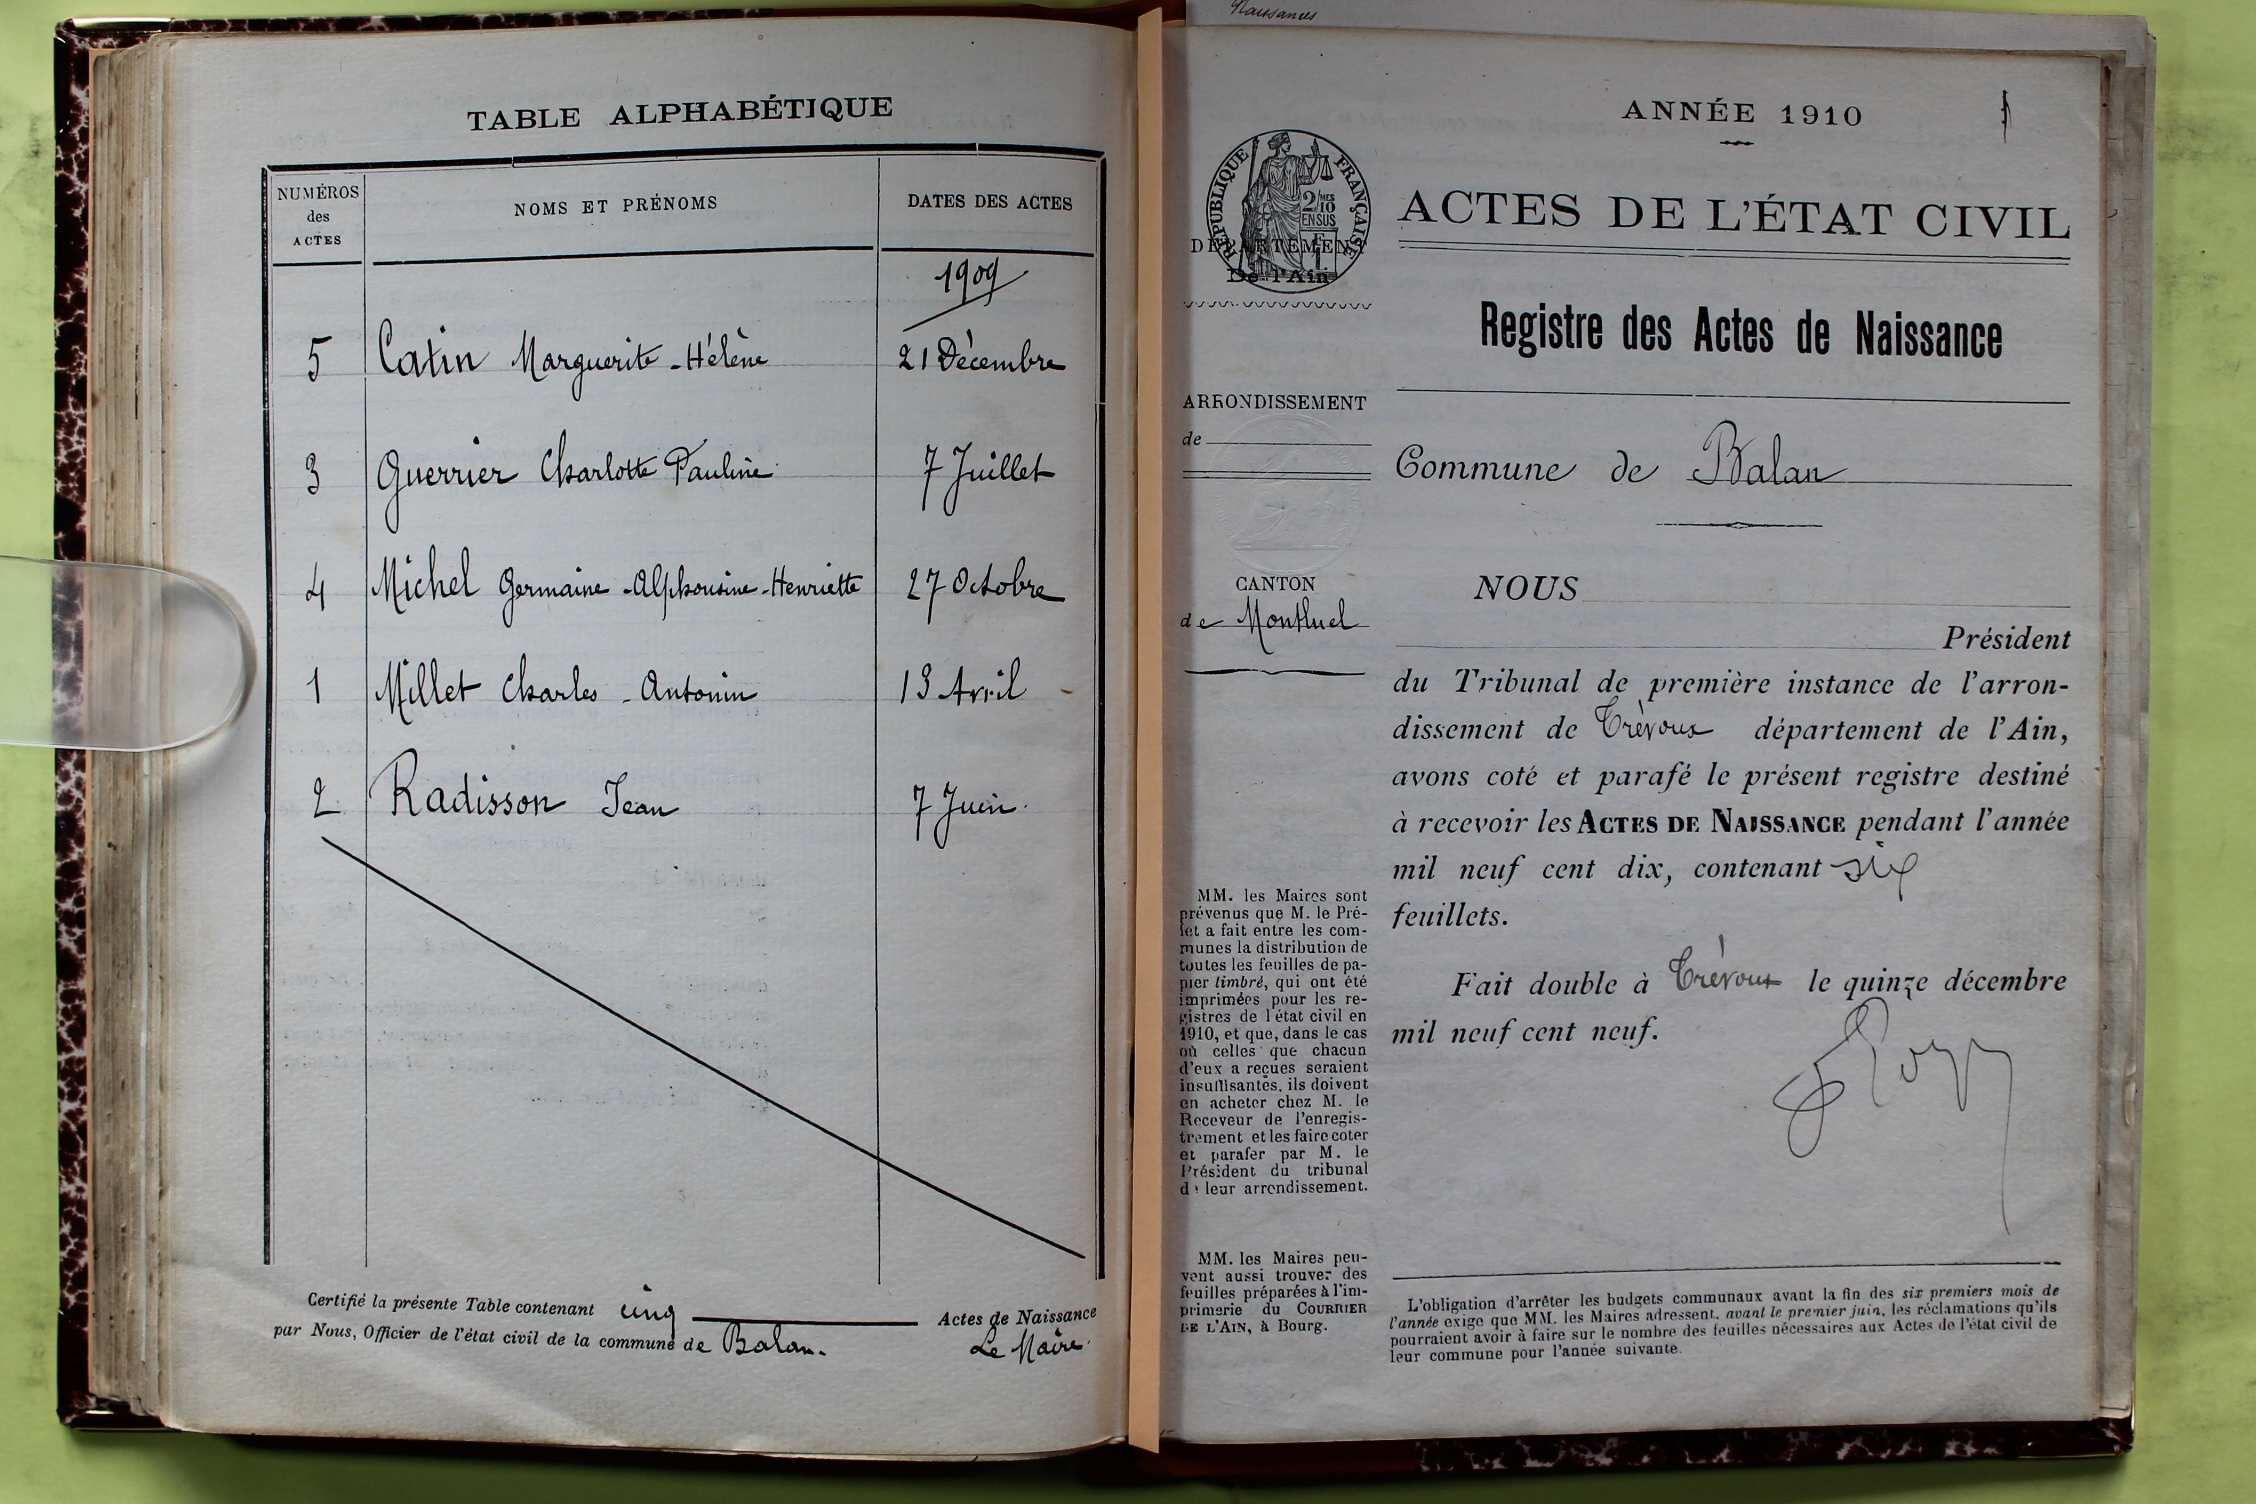 TABLE ALPHABÉTIQUE
NUMÉROS
des
ACTES
NOMS ET PRÉNOMS
DATES DES ACTES
1909
5 Catin Marguerite-Hélène 21 Décembre
3 Guerrier Charlotte Pauline 7 Juillet
4 Michel Germaine-Alphonsine-Henriette 27 Octobre
1 Millet Charles-Antonin 13 Avril
2 Radisson Jean 7 Juin.
Certifié la présente Table contenant cinq Actes de Naissance
par Nous, Officier de l'état civil de la commune de Balan.
Le Maire.
Naissances
ANNÉE 1910
RÉPUBLIQUE FRANÇAISE
2/10 MES
EN SUS
DÉPARTEMENT
De l'Ain
ARRONDISSEMENT
de
CANTON
de Montluel
MM. les Maires sont
prévenus que M. le Pré-
fet a fait entre les com-
munes la distribution de
toutes les feuilles de pa-
pier timbré, qui ont été
imprimées pour les re-
gistres de l'état civil en
1910, et que, dans le cas
où celles que chacun
d'eux a reçues seraient
insuffisantes, ils doivent
en acheter chez M. le
Receveur de l'enregis-
trement et les faire coter
et parafer par M. le
Président du tribunal
de leur arrondissement.
MM. les Maires peu-
vent aussi trouver des
feuilles préparées à l'im-
primerie du COURRIER
DE L'AIN, à Bourg.
ACTES DE L'ÉTAT CIVIL
Registre des Actes de Naissance
Commune de Balan
NOUS
Président
du Tribunal de première instance de l'arron-
dissement de Trévoux département de l'Ain,
avons coté et parafé le présent registre destiné
à recevoir les ACTES DE NAISSANCE pendant l'année
mil neuf cent dix, contenant six
feuillets.
Fait double à Trévoux le quinze décembre
mil neuf cent neuf.
L'obligation d'arrêter les budgets communaux avant la fin des six premiers mois de
l'année exige que MM. les Maires adressent, avant le premier juin, les réclamations qu'ils
pourraient avoir à faire sur le nombre des feuilles nécessaires aux Actes de l'état civil de
leur commune pour l'année suivante.